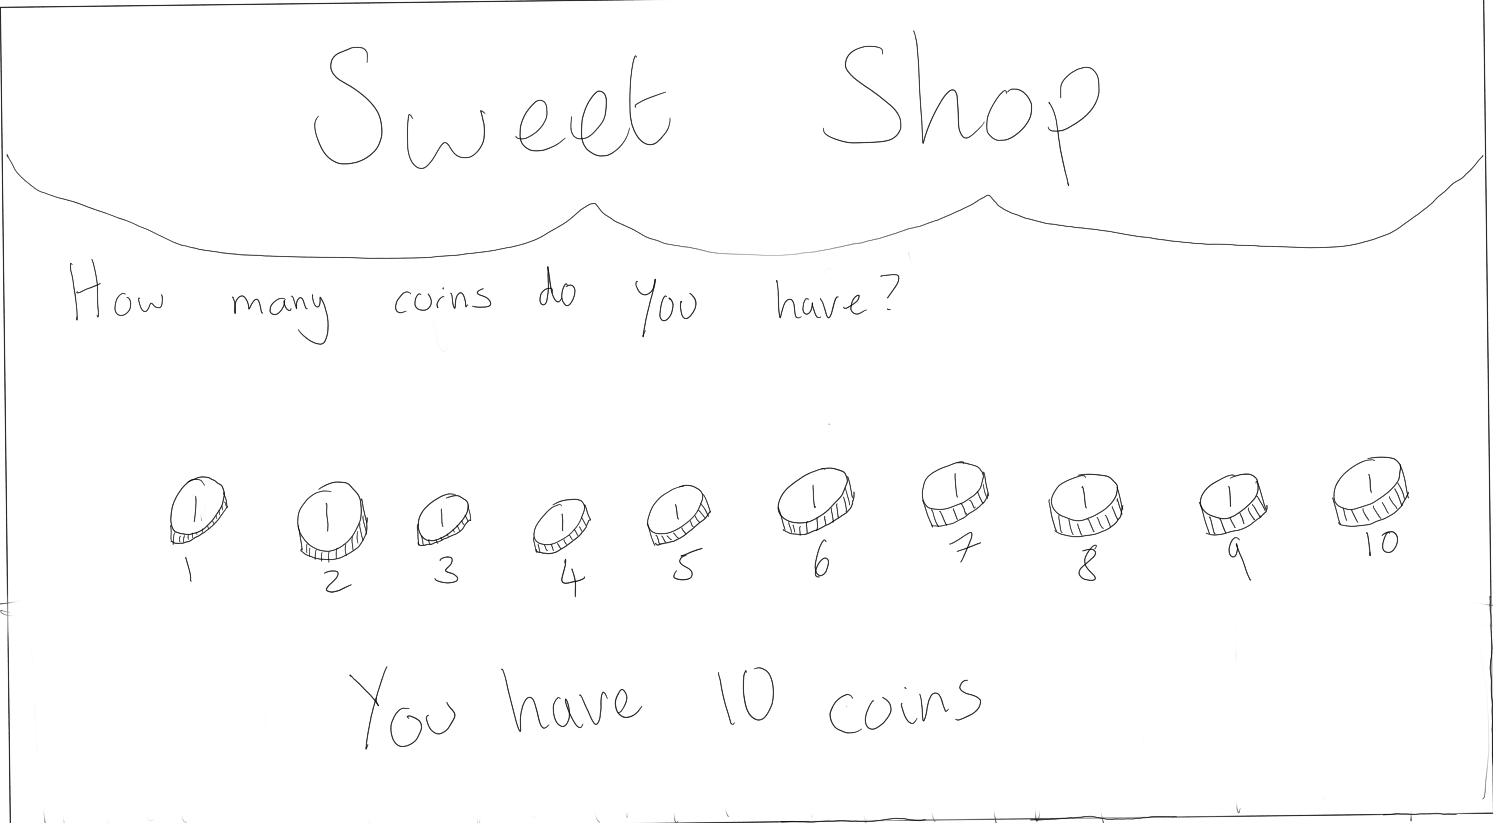 Sweet Shop
How many coins do you have?
1 1 1 1 1 1 1 1 1 1
1 2 3 4 5 6 7 8 9 10
You have 10 coins